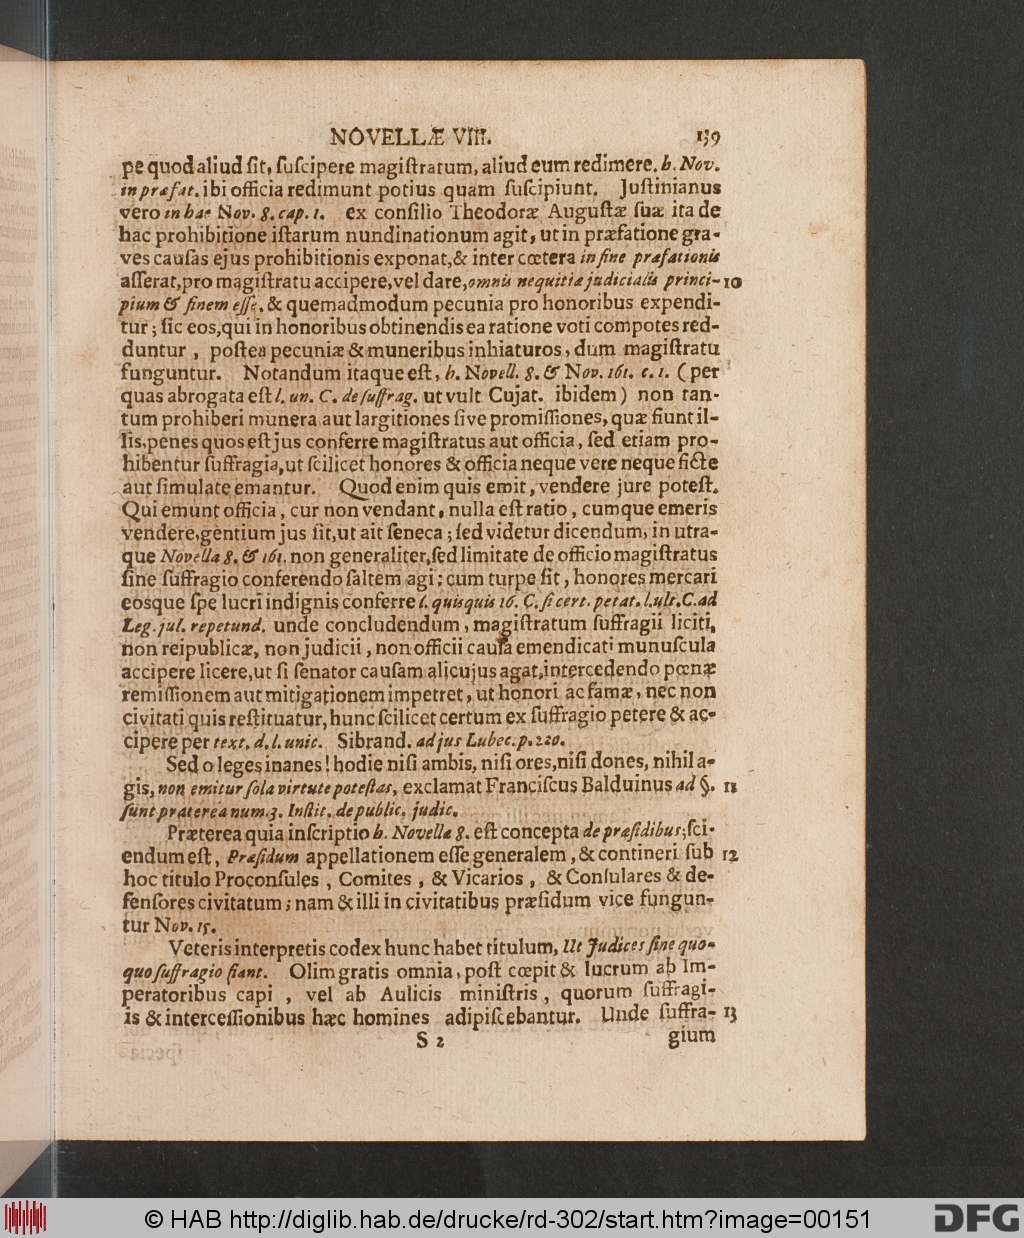 NOVELLÆ VIII. 139
pe quod aliud sit, suscipere magistratum, aliud eum redimere. h. Nov.
in præfat. ibi officia redimunt potius quam suscipiunt. Justinianus
vero in hac Nov. 8. cap. 1. ex consilio Theodoræ Augustæ suæ ita de
hac prohibitione istarum nundinationum agit, ut in præfatione gra-
ves causas ejus prohibitionis exponat, & inter cœtera in fine præfationis
asserat, pro magistratu accipere, vel dare, omnis nequitiæ judicialis princi- 10
pium & finem esse, & quemadmodum pecunia pro honoribus expendi-
tur; sic eos, qui in honoribus obtinendis ea ratione voti compotes red-
duntur, postea pecuniæ & muneribus inhiaturos, dum magistratu
funguntur. Notandum itaque est, h. Novell. 8. & Nov. 161. c. 1. (per
quas abrogata est l. un. C. de suffrag. ut vult Cujat. ibidem) non tan-
tum prohiberi munera aut largitiones sive promissiones, quæ fiunt il-
lis, penes quos est jus conferre magistratus aut officia, sed etiam pro-
hibentur suffragia, ut scilicet honores & officia neque vere neque ficte
aut simulate emantur. Quod enim quis emit, vendere jure potest.
Qui emunt officia, cur non vendant, nulla est ratio, cumque emeris
vendere, gentium jus sit, ut ait seneca; sed videtur dicendum, in utra-
que Novella 8. & 161. non generaliter, sed limitate de officio magistratus
sine suffragio conferendo saltem agi; cum turpe sit, honores mercari
eosque spe lucri indignis conferre l. quisquis 16. C. si cert. petat. l. ult. C. ad
Leg. jul. repetund. unde concludendum, magistratum suffragii liciti,
non reipublicæ, non judicii, non officii causa emendicati munuscula
accipere licere, ut si senator causam alicujus agat, intercedendo pœnæ
remissionem aut mitigationem impetret, ut honori ac famæ, nec non
civitati quis restituatur, hunc scilicet certum ex suffragio petere & ac-
cipere per text. d. l. unic. Sibrand. ad jus Lubec. p. 220.
Sed o leges inanes! hodie nisi ambis, nisi ores, nisi dones, nihil a-
gis, non emitur sola virtute potestas, exclamat Franciscus Balduinus ad §. 11
sunt præterea num. 3. Instit. de public. judic.
Præterea quia inscriptio h. Novellæ 8. est concepta de præsidibus; sci-
endum est, Præsidum appellationem esse generalem, & contineri sub 12
hoc titulo Proconsules, Comites, & Vicarios, & Consulares & de-
fensores civitatum; nam & illi in civitatibus præsidum vice fungun-
tur Nov. 15.
Veteris interpretis codex hunc habet titulum, Ut Judices sine quo-
quo suffragio fiant. Olim gratis omnia, post cœpit & lucrum ab Im-
peratoribus capi, vel ab Aulicis ministris, quorum suffragi-
is & intercessionibus hæc homines adipiscebantur. Unde suffra- 13
S 2 gium
© HAB http://diglib.hab.de/drucke/rd-302/start.htm?image=00151 DFG